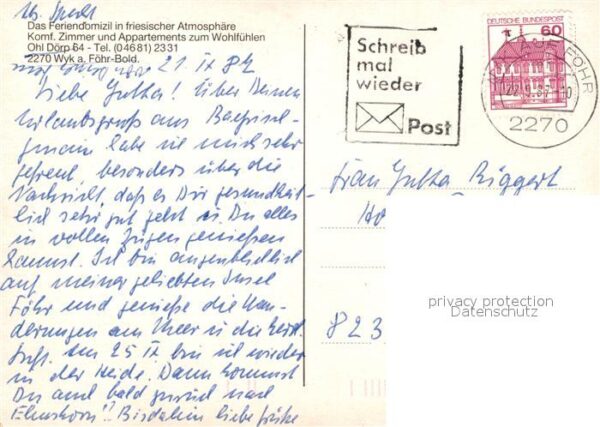 Das Feriendomizil in friesischer Atmosphäre
Komf. Zimmer und Appartements zum Wohlfühlen
Ohl Dörp 64 - Tel. (04681) 2331
2270 Wyk a. Föhr-Bold.
21 IX 87
Liebe Jutta! Über Deinen
Urlaubsgruß aus
habe ich mich sehr
gefreut, besonders über die
Nachricht, daß es Dir gesundheit-
lich sehr gut geht u. Du alles
in vollen Zügen genießen
kannst. Ich bin augenblicklich
auf meiner geliebten Insel
Föhr und genieße die Wan-
derungen am Meer u. die herrl.
Luft. Am 25 IX bin ich wieder
in der Heide. Dann kommst
Du auch bald zurück nach
Elmshorn? Bis dahin liebe Grüße
Schreib
mal
wieder
Post
DEUTSCHE BUNDESPOST
60
AUF FÖHR
22.9.87-10
2270
Frau Jutta Biggert
Ho
823
privacy protection
Datenschutz